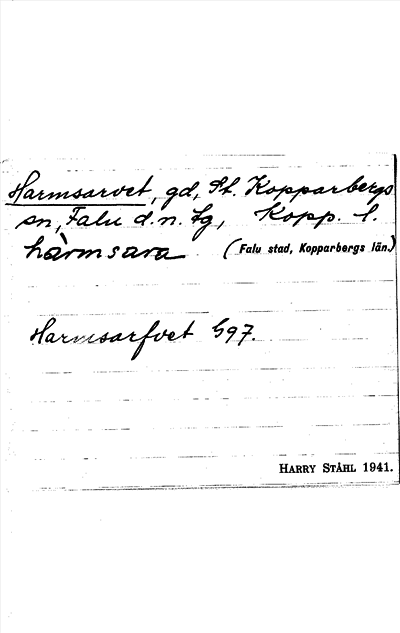 Harmsarvet, gd, St. Kopparbergs
sn, Falu d.n. tg, Kopp. l.
hàrmsara (Falu stad, Kopparbergs län.)
Harmsarfvet G97.
HARRY STÅHL 1941.